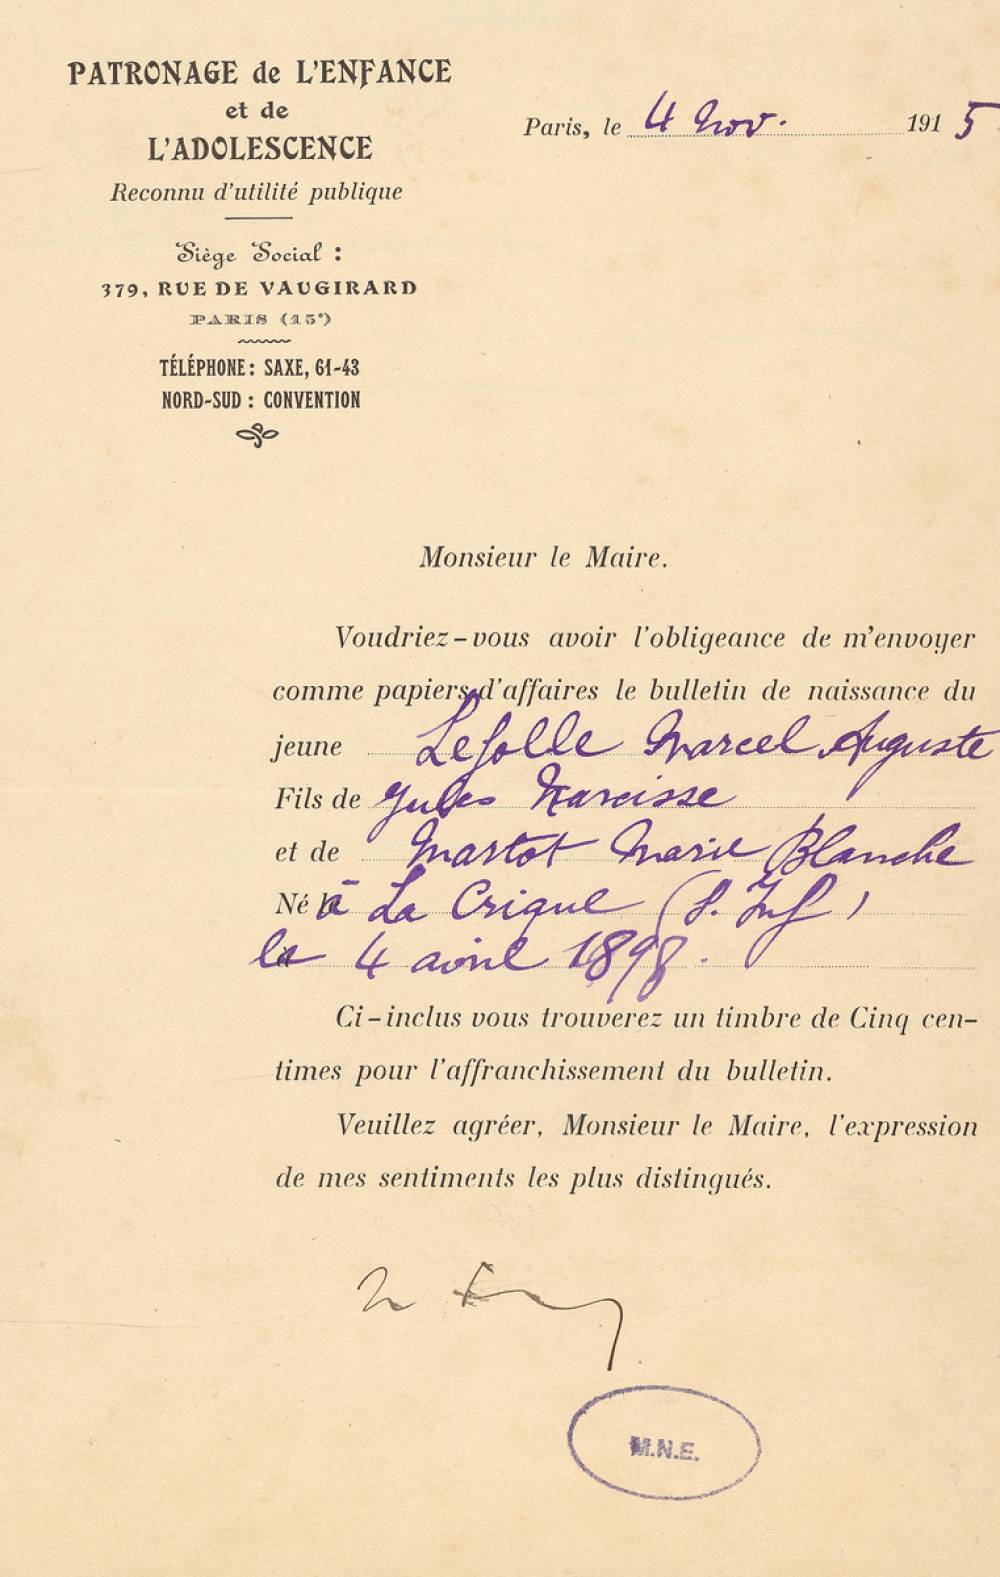 PATRONAGE de L'ENFANCE
et de
L'ADOLESCENCE
Reconnu d'utilité publique
Siège Social :
379, RUE DE VAUGIRARD
PARIS (15e)
TÉLÉPHONE : SAXE, 61-43
NORD-SUD : CONVENTION
Paris, le 4 Nov. 1915
Monsieur le Maire.
Voudriez-vous avoir l'obligeance de m'envoyer
comme papiers d'affaires le bulletin de naissance du
jeune Lefolle Marcel Auguste
Fils de Jules Narcisse
et de Martot Marie Blanche
Né à La Crique (S. Inf)
le 4 avril 1898.
Ci-inclus vous trouverez un timbre de Cinq cen-
times pour l'affranchissement du bulletin.
Veuillez agréer, Monsieur le Maire, l'expression
de mes sentiments les plus distingués.
M.N.E.